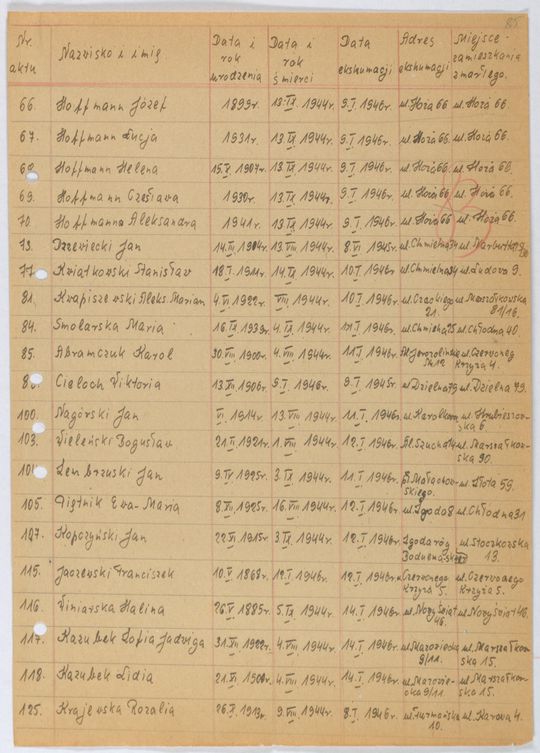 85.
Nr. aktu Nazwisko i imię Data i rok urodzenia Data i rok śmierci Data ekshumacji Adres ekshumacji Miejsce zamieszkania zmarłego.
66. Hoffmann Józef 1899r. 13.IX.1944r. 9.I.1946r. ul.Hoża 66 ul. Hoża 66.
67. Hoffmann Łucja 1931r. 13.IX.1944r. 9.I.1946r. ul.Hoża 66. ul.Hoża 66.
68. Hoffmann Helena 15.V.1907r. 13.IX.1944r. 9.I.1946r. ul.Hoża 66. ul. Hoża 66.
69. Hoffmann Czesława 1930r. 13.IX.1944r. 9.I.1946r. ul.Hoża 66 ul. Hoża 66.
70. Hoffmanna Aleksandra 1941r. 13.IX.1944r. 9.I.1946r. ul.Hoża 66 ul. Hoża 66.
73. Drzewiecki Jan 14.VI.1904r. 13.VIII.1944r. 8.VI.1945r. ul.Chmielna
77. Kwiatkowski Stanisław 18.I.1911r. 14.IX.1944r. 10.I.1946r. ul.Chmielna ul.Ludova 9.
81. Krapiszewski Aleks Marian 4.V.1922r. VIII.1944r. 10.I.1946r. ul.Czackiego ul.Marszałkowska
21. 81/16.
84. Smolarska Maria 16.IX.1933r. 4.IX.1944r. I.1946r. ul.Chmielna 25 ul.Chłodna 40
85. Abramczuk Karol 30.VIII.1900r. 4.VIII.1944r. 11.I.1946r. Al.Jerozolimskie ul.Czerwoneg
Krzyża 4.
Cieloch Wiktoria 13.XII.1906r. 9.I.1946r. 9.I.1945r. ul Dzielna 79 ul. Dzielna 79.
100. Nagórski Jan VI.1914r. 13.VIII.1944r. 11.I.1946r. ul.Karolkowa ul.Hrubieszow-
ska 6.
103. Wieleński Bogusław 21.II.1921r. 1.VIII.1944r. 12.I.1946r. Al.Szucha 14 ul.Marszałkow-
ska 90.
Lembrzuski Jan 9.IV.1925r. 3.IX.1944r. 11.I.1946r. Małachow- ul.Złota 59.
skiego.
105. Piętnik Ewa-Maria 8.VII.1925r. 16.VIII.1944r. 12.I.1946r. ul.Zgoda 8 ul.Chłodna 31
107. Kopczyński Jan 22.VI.1915r. 3.IX.1944r. 12.I.1946r. Zgoda róg ul.Stoczkowska
Boduena 13.
115. Jaczewski Franciszek 10.V.1868r. 12.I.1946r. 12.I.1946r. Czerwonego ul.Czerwonego
Krzyża 5. Krzyża 5.
116. Winiarska Halina 26.V.1885r. 5.IX.1944r. 14.I.1946r. ul.Nowy Świat ul.Nowy Świat 46.
46.
117. Kazubek Zofia Jadwiga 31.XII.1922r. 4.VIII.1944r. 14.I.1946r. ul.Mazowiecka ul.Marszałkow-
9/11. ska 15.
118. Kazubek Lidia 21.VI.1900r. 4.VIII.1944r. 14.I.1946r. ul.Mazowie- ul.Marszałkow-
cka 9/11. ska 15.
125. Krajewska Rozalia 26.V.1913r. 9.VIII.1944r. 8.I.1946r. ul.Furmańska ul.Karowa 4.
10.